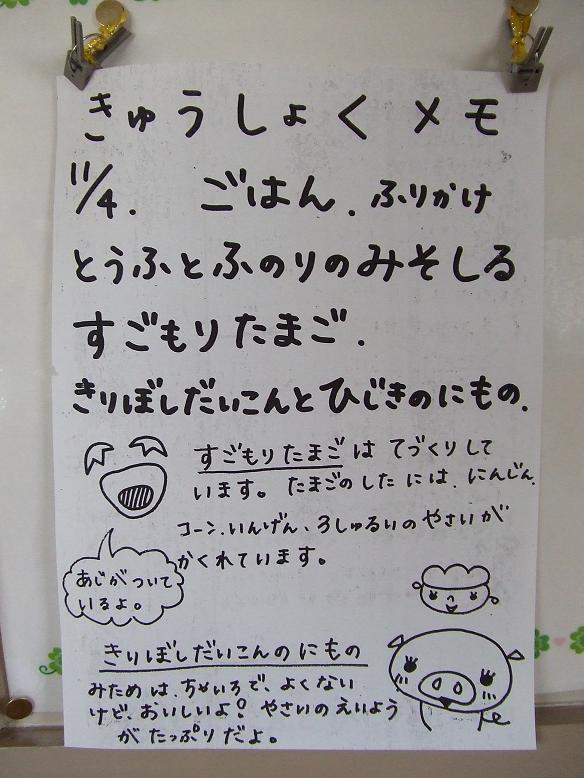 きゅうしょくメモ
11/4. ごはん.ふりかけ
とうふとふのりのみそしる
すごもりたまご.
きりぼしだいこんとひじきのにもの.
すごもりたまごは てづくりして
います。たまごのしたには、にんじん、
コーン、いんげん、3しゅるいのやさいが
かくれています。
あじがついて
いるよ。
きりぼしだいこんのにもの
みためは、ちゃいろで、よくない
けど、おいしいよ!やさいのえいよう
がたっぷりだよ。